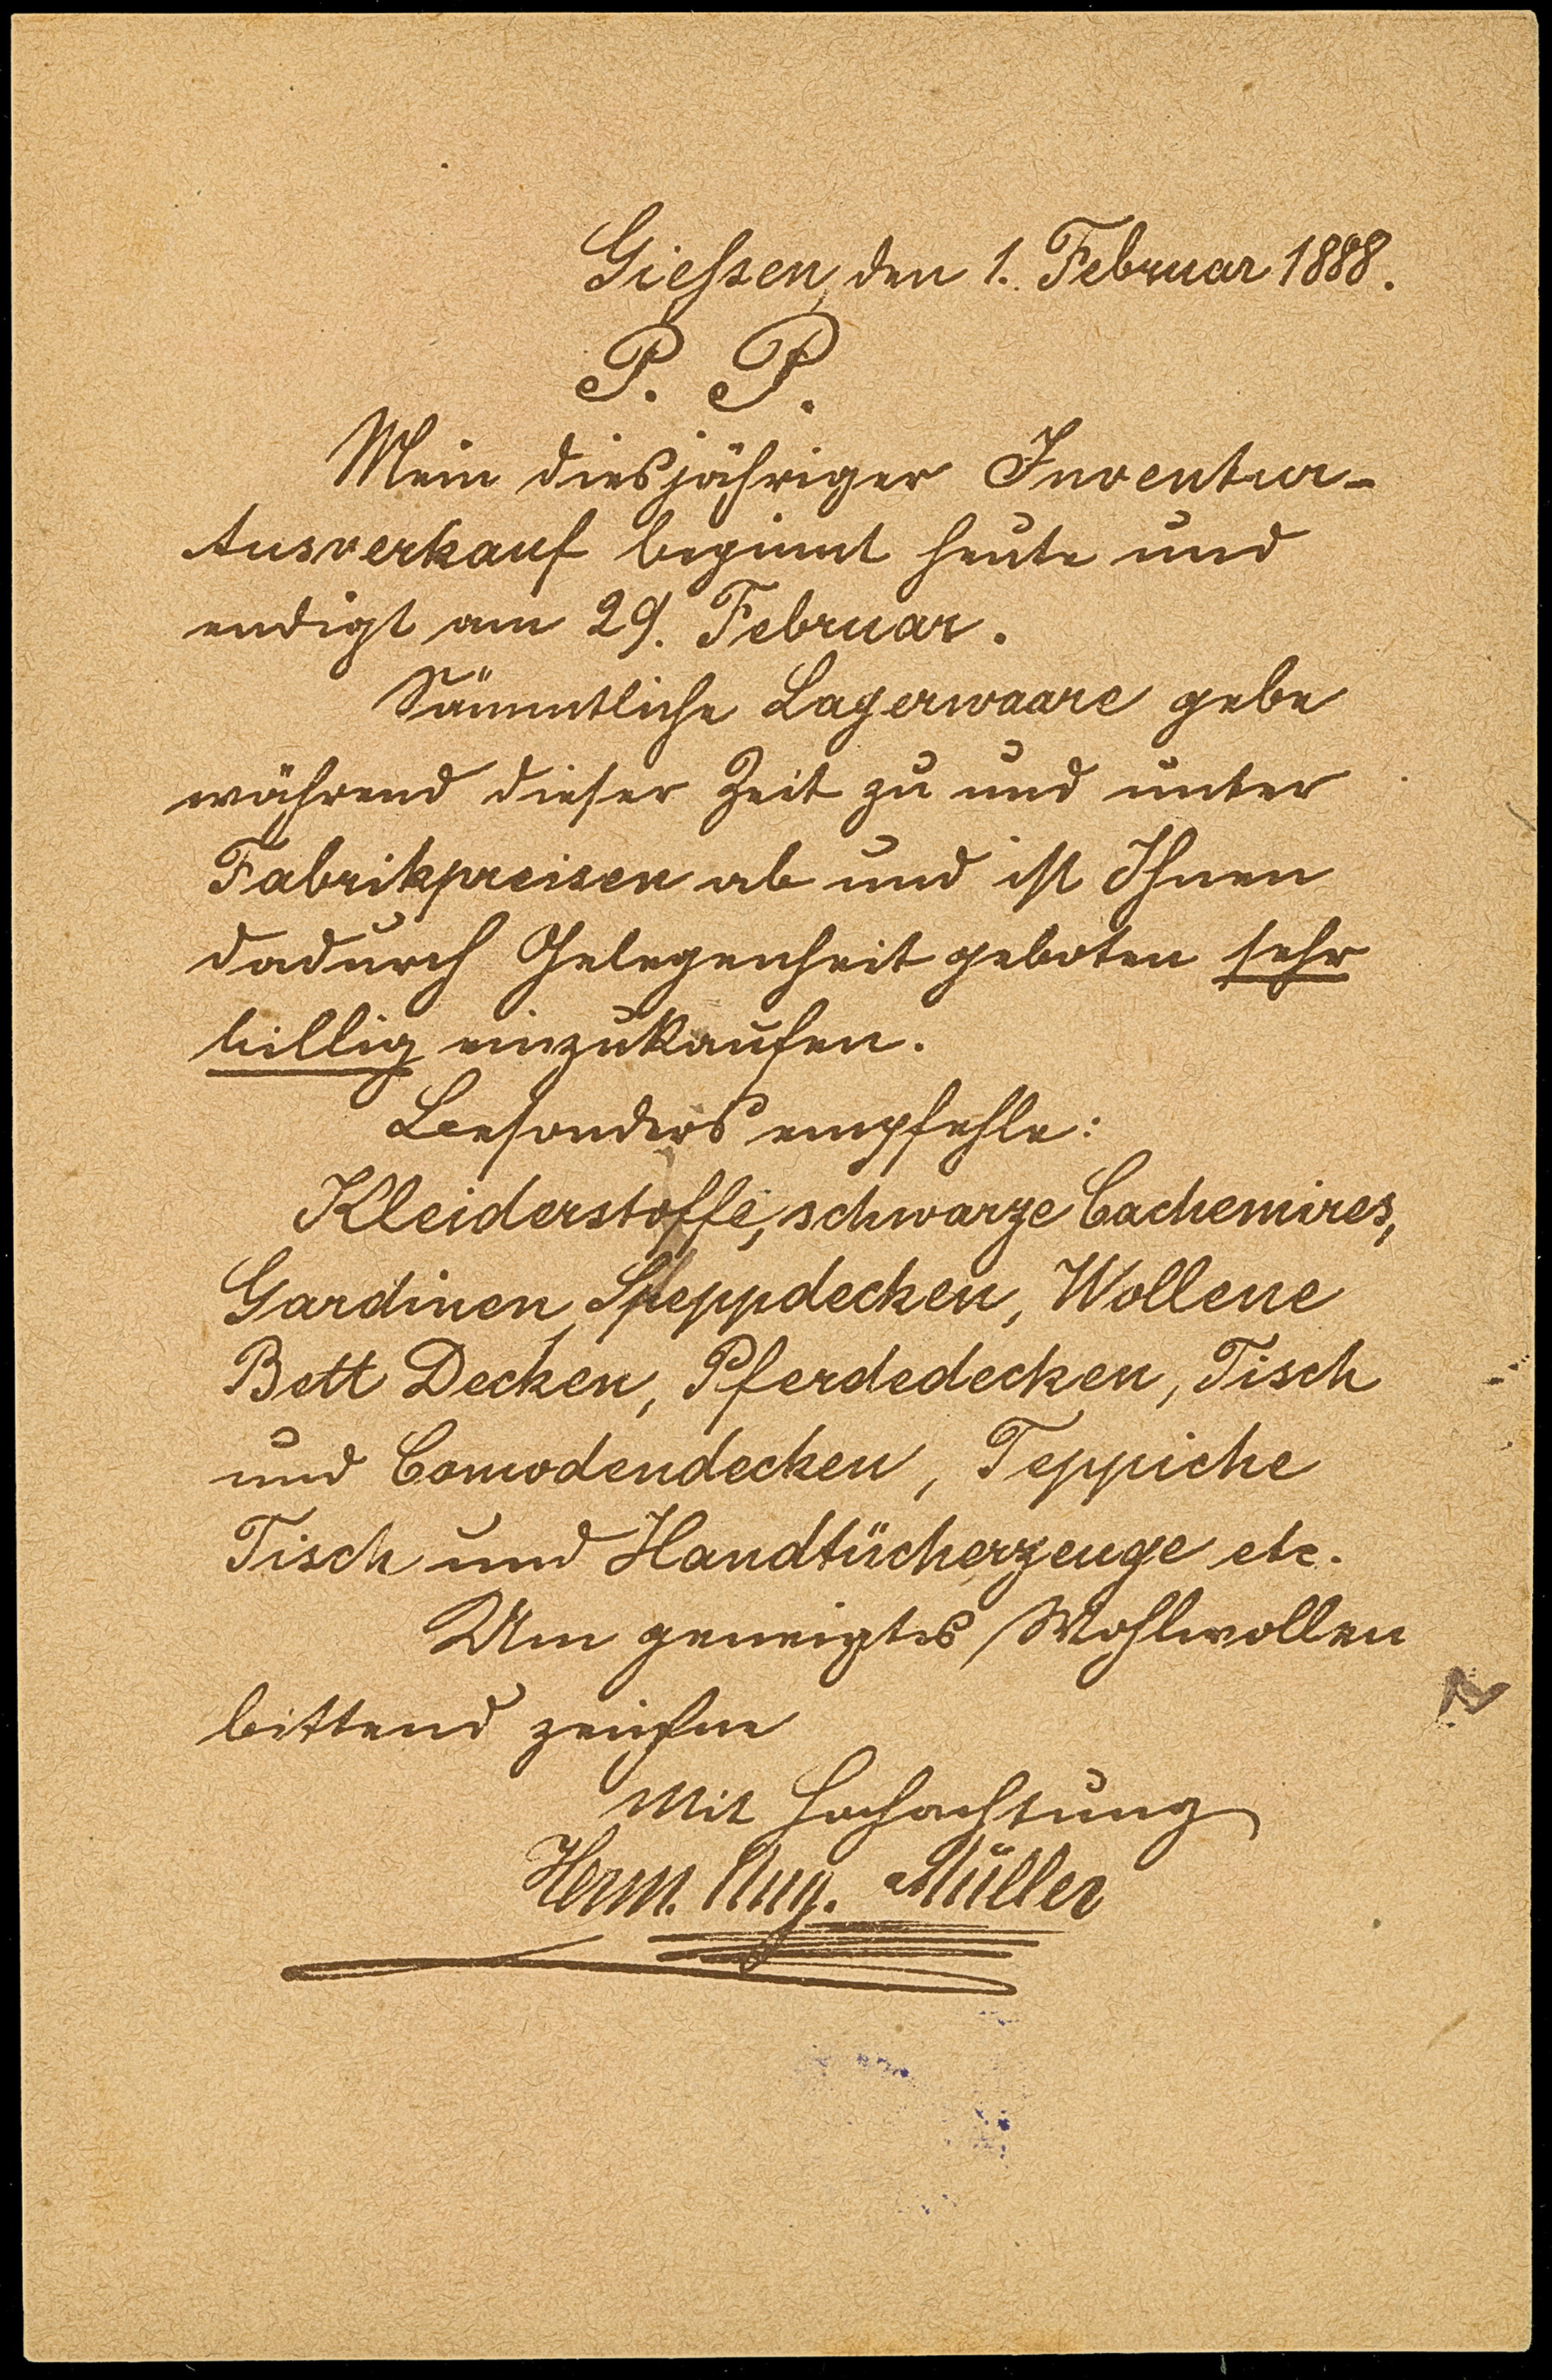 Giessen, den 1. Februar 1888.
P. P.
Mein diesjähriger Inventur-
Ausverkauf beginnt heute und
endigt am 29. Februar.
Sämmtliche Lagerwaare gebe
während dieser Zeit zu und unter
Fabrikpreisen ab und ist Ihnen
dadurch Gelegenheit geboten sehr
billig einzukaufen.
Besonders empfehle:
Kleiderstoffe, schwarze Cachemires,
Gardinen, Steppdecken, Wollene
Bett Decken, Pferdedecken, Tisch
und Comodendecken, Teppiche
Tisch und Handtücherzeuge etc.
Um geneigtes Wohlwollen
bittend zeichne
Mit Hochachtung
Herm. Aug. Müller